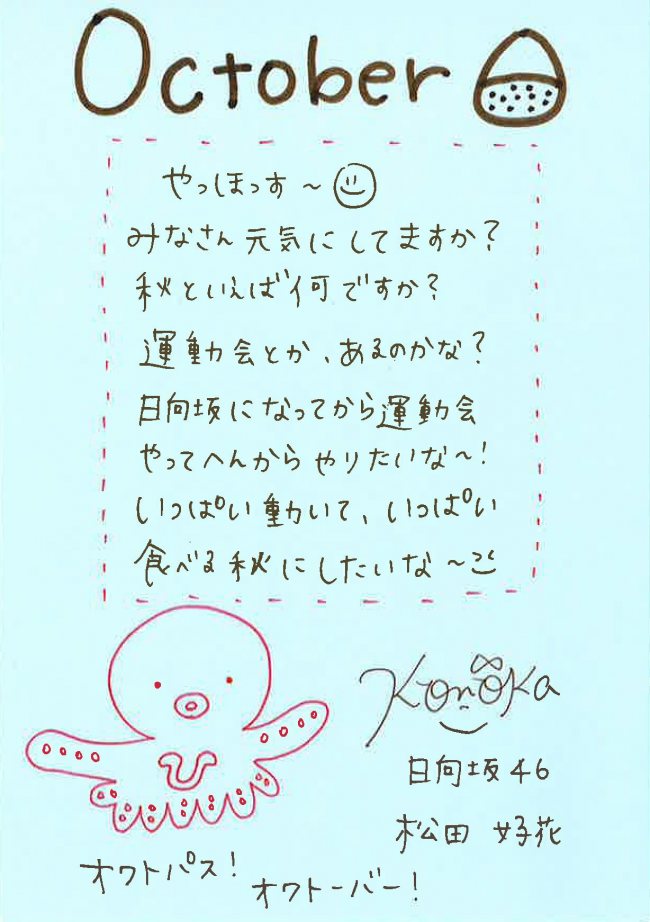 October
やっほっす～
みなさん元気にしてますか？
秋といえば何ですか？
運動会とか、あるのかな？
日向坂になってから運動会
やってへんからやりたいな～！
いっぱい動いて、いっぱい
食べる秋にしたいな～
Konoka
日向坂46
松田 好花
オクトパス！
オクトーバー！